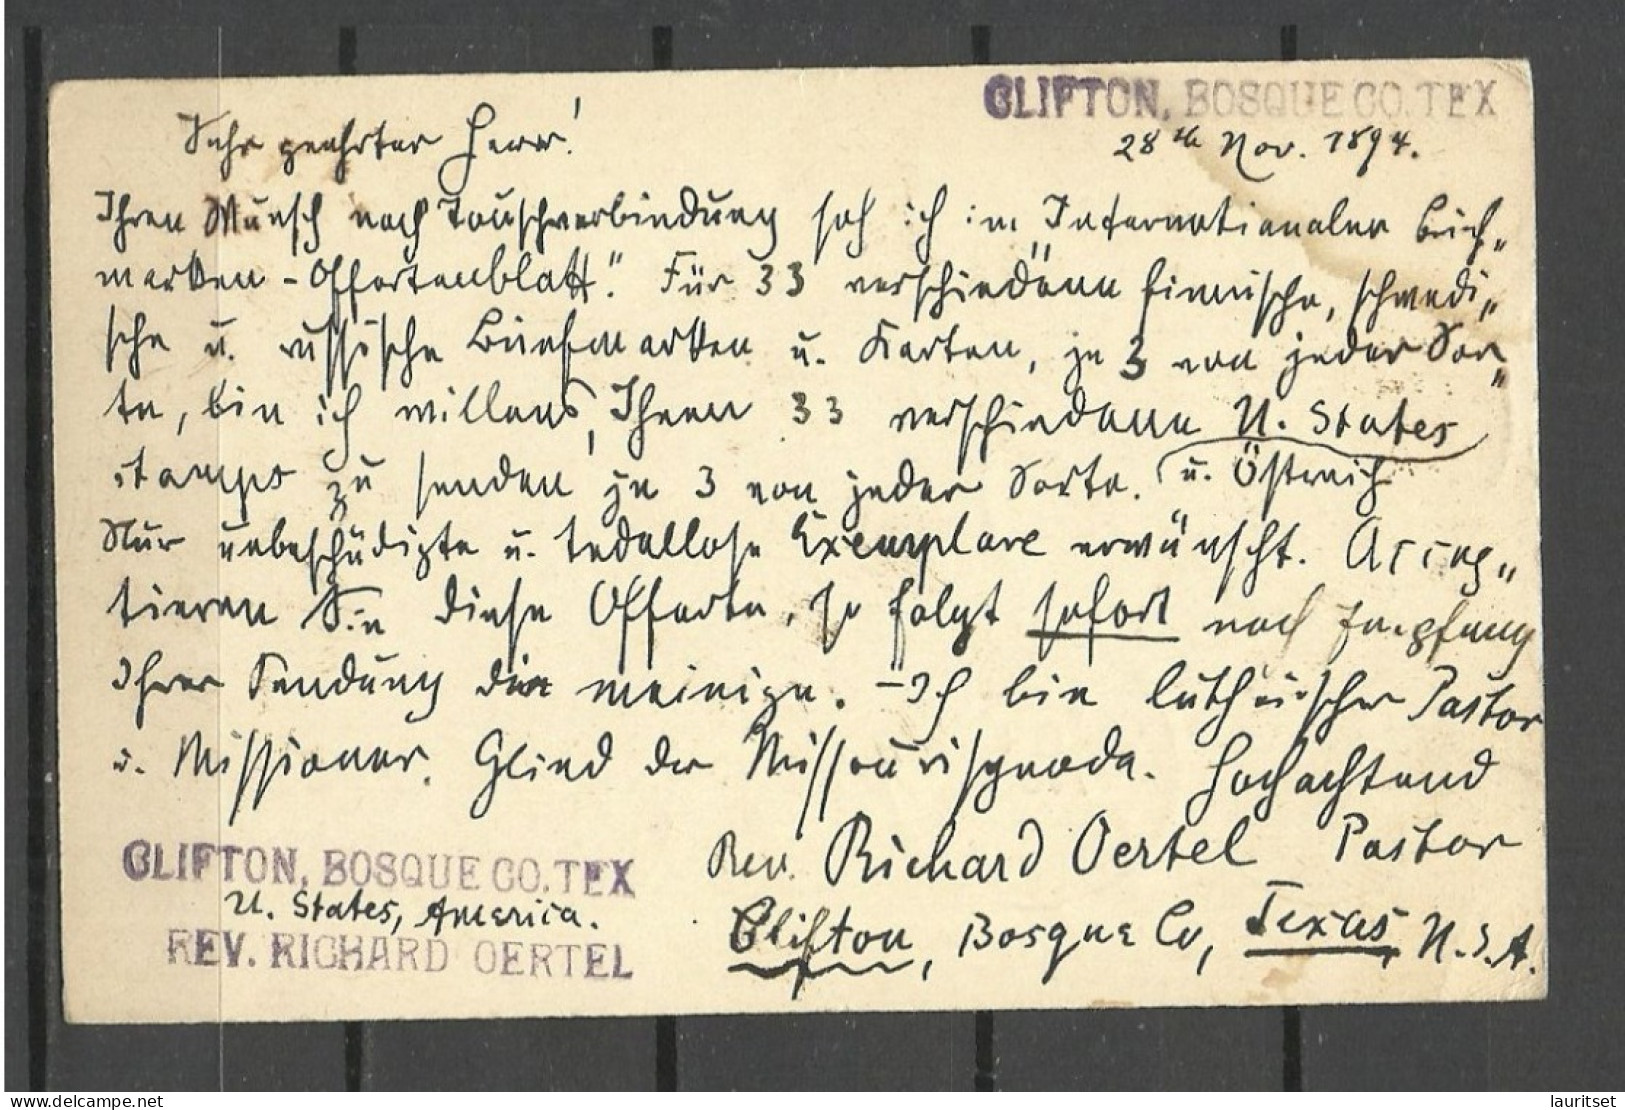 CLIFTON, BOSQUE CO. TEX
Sehr geehrter Herr!
28th Nov. 1894.
Ihren Wunsch nach Tauschverbindung sah ich im „Internationalen Brief„
marken-Offertenblatt". Für 33 verschiedene finnische, schwedi„
sche u. russische Briefmarken u. Karten, je 3 von jeder Sor„
te, bin ich willens, Ihnen 33 verschiedene U. States
stamps zu senden je 3 von jeder Sorte. u. Östreich
Nur unbeschädigte u. tadellose Exemplare erwünscht. Accep„
tieren Sie diese Offerte, so folgt sofort nach Empfang
Ihrer Sendung die meinige. - Ich bin luth. Pastor
u. Missionar. Glied der Missourisynode. Hochachtend
Rev. Richard Oertel Pastor
Clifton, Bosque Co, Texas, U.S.A.
CLIFTON, BOSQUE CO. TEX
U. States, America.
REV. RICHARD OERTEL
www.delcampe.net
lauritset